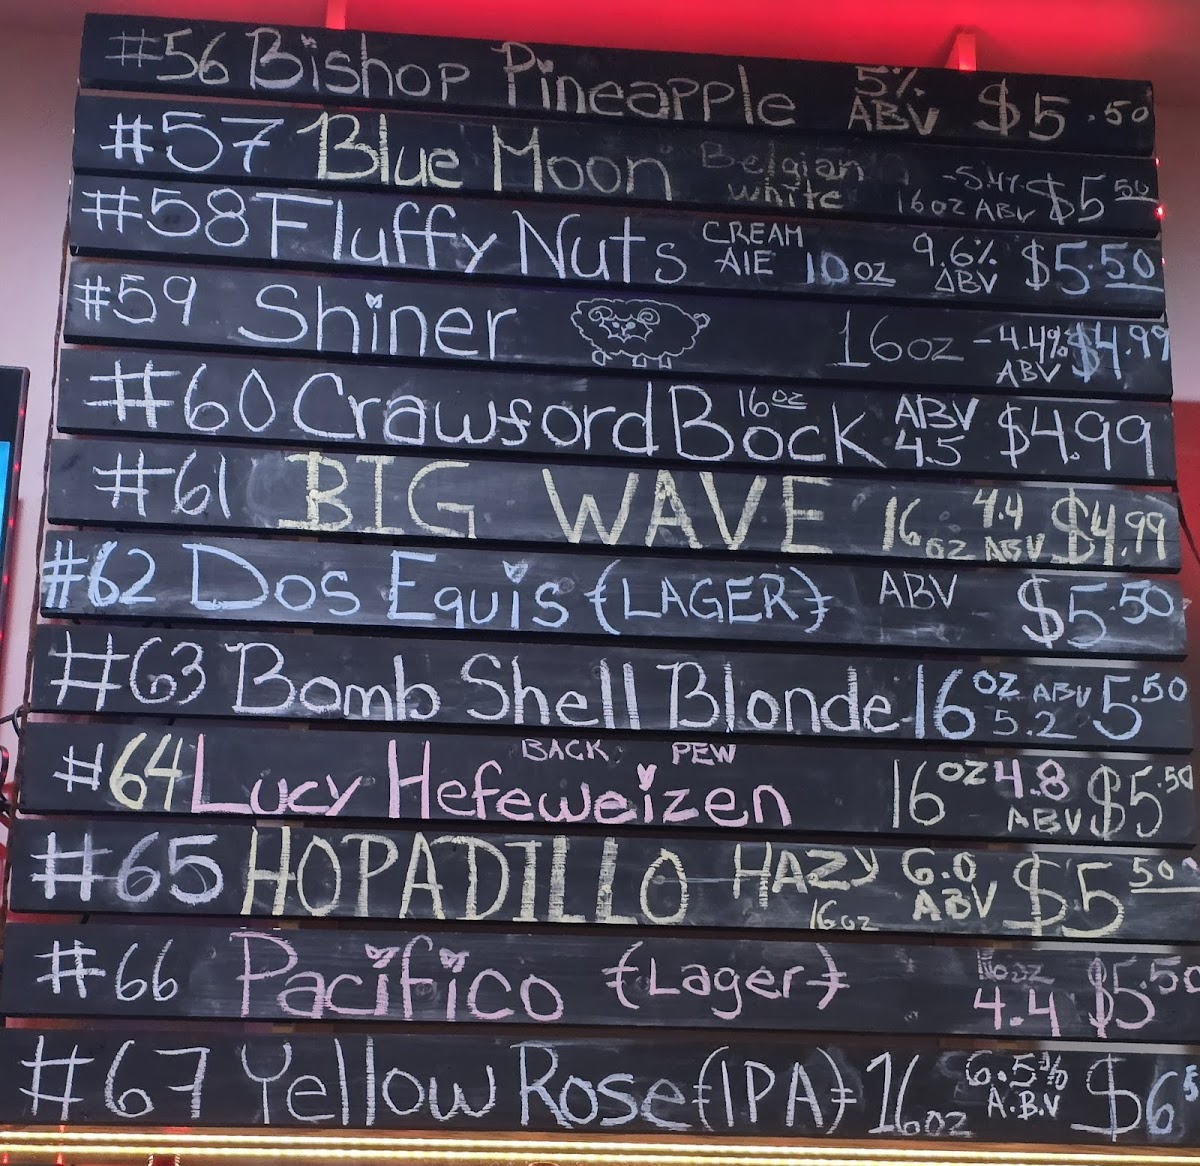 #56 Bishop Pineapple 5% ABV $5.50
#57 Blue Moon Belgian white 16oz -5.4% ABV $5.50
#58 Fluffy Nuts CREAM AlE 10oz 9.6% ABV $5.50
#59 Shiner 16oz -4.4% ABV $4.99
#60 Crawford Bock 16oz ABV 4.5 $4.99
#61 BIG WAVE 16oz 4.4 ABV $4.99
#62 Dos Equis {LAGER} ABV $5.50
#63 Bomb Shell Blonde 16oz ABV 5.2 5.50
#64 Lucy Hefeweizen BACK PEW 16oz 4.8 ABV $5.50
#65 HOPADILLO HAZY 16oz 6.0 ABV $5.50
#66 Pacifico {Lager} 16oz 4.4 $5.50
#67 Yellow Rose {IPA} 16oz 6.5% A.B.V $6